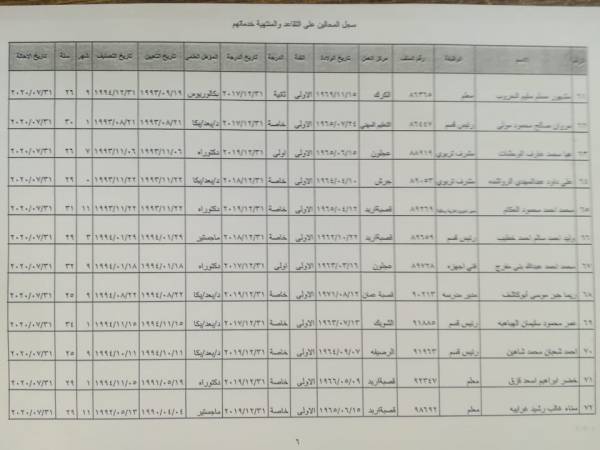 سجل المحالين على التقاعد والمنتهية خدماتهم
الرقم الاسم الوظيفة رقم الملف مركز العمل تاريخ الولادة الفئة الدرجة تاريخ الدرجة المؤهل العلمي تاريخ التعيين تاريخ التصنيف شهر سنة تاريخ الاحالة
٦١ مشهور مسلم سليم معلم ٨٦٣٦٥ الكرك ١٩٦٩/١١/١٥ الاولى ثانية ٢٠١٧/١٢/٣١ بكالوريوس ١٩٩٣/٠٩/١٩ ١٩٩٤/١٢/٣١ ٩ ٢٦ ٢٠٢٠/٠٧/٣١
٦٢ مروان صالح محمود مولى رئيس قسم ٨٦٤٤٧ التعليم المهني ١٩٦٥/٠٧/٢٤ الاولى خاصة ٢٠١٧/١٢/٣١ د.بعد/بكا ١٩٩٣/٠٨/٢١ ١٩٩٣/٠٨/٢١ ١ ٣٠ ٢٠٢٠/٠٧/٣١
٦٣ محمد عارف مشرف تربوي ٨٨٩١٩ عجلون ١٩٦٥/٠٦/١٥ الاولى اولى ٢٠١٩/١٢/٣١ دكتوراه ١٩٩٣/١١/٠٦ ١٩٩٣/١١/٠٦ ٧ ٢٦ ٢٠٢٠/٠٧/٣١
٦٤ علي داود عبدالمهدي الرواشده مشرف تربوي ٨٩٠٥٣ جرش ١٩٦٤/٠٤/١٠ الاولى خاصة ٢٠١٨/١٢/٣١ د.بعد/بكا ١٩٩٣/١١/٢٢ ١٩٩٣/١١/٢٢ ٠ ٢٩ ٢٠٢٠/٠٧/٣١
٦٥ محمد احمد محمود ٨٩٢٦٩ قصبة اربد ١٩٦٥/٠٤/١٢ الاولى خاصة ٢٠١٩/١٢/٣١ دكتوراه ١٩٩٣/١١/٢٢ ١٩٩٣/١١/٢٢ ١١ ٣١ ٢٠٢٠/٠٧/٣١
٦٦ وليد احمد سالم احمد خطيب رئيس قسم ٨٩٦٥٩ قصبة اربد ١٩٦٢/١٠/٢٢ الاولى خاصة ٢٠١٨/١٢/٣١ ماجستير ١٩٩٤/٠١/٢٩ ١٩٩٤/٠١/٢٩ ٣ ٢٩ ٢٠٢٠/٠٧/٣١
٦٧ محمد احمد عبدالله بني مفرج فني اجهزه ٨٩٧٢٨ عجلون ١٩٦٣/٠٢/١٦ الاولى اولى ٢٠١٧/١٢/٣١ دكتوراه ١٩٩٤/٠١/١٨ ١٩٩٤/٠١/١٨ ٩ ٣٢ ٢٠٢٠/٠٧/٣١
٦٨ ريما جبر موسى ابوكاشف مدير مدرسه ٩٠٢١٣ قصبة عمان ١٩٧١/٠٨/١٢ الاولى خاصة ٢٠١٩/١٢/٣١ د.بعد/بكا ١٩٩٤/٠٨/٢٢ ١٩٩٤/٠٨/٢٢ ٩ ٢٥ ٢٠٢٠/٠٧/٣١
٦٩ عمر محمود سليمان الهباهبه رئيس قسم ٩١٨٨٥ الشوبك ١٩٦٣/٠٧/١٣ الاولى خاصة ٢٠١٧/١٢/٣١ د.بعد/بكا ١٩٩٤/١١/١٥ ١٩٩٤/١١/١٥ ١ ٣٤ ٢٠٢٠/٠٧/٣١
٧٠ احمد شعبان محمد شاهين رئيس قسم ٩١٩٦٣ الرصيفه ١٩٦٤/٠٩/٠٧ الاولى خاصة ٢٠١٩/١٢/٣١ د.بعد/بكا ١٩٩٤/١٠/١١ ١٩٩٤/١٠/١١ ٩ ٢٥ ٢٠٢٠/٠٧/٣١
٧١ خضر ابراهيم اسعد قزق معلم ٩٢٣٤٧ قصبة اربد ١٩٦٦/٠٥/٠٩ الاولى خاصة ٢٠١٩/١٢/٣١ دكتوراه ١٩٩١/٠٥/١٩ ١٩٩٤/١١/٠٥ ١ ٢٩ ٢٠٢٠/٠٧/٣١
٧٢ سناء غالب رشيد غرايبه معلم ٩٨٦٩٢ قصبة اربد ١٩٦٥/٠٦/١٥ الاولى خاصة ٢٠١٩/١٢/٣١ ماجستير ١٩٩٠/٠٤/٠٤ ١٩٩٢/٠٥/١٣ ١١ ٢٩ ٢٠٢٠/٠٧/٣١
٦